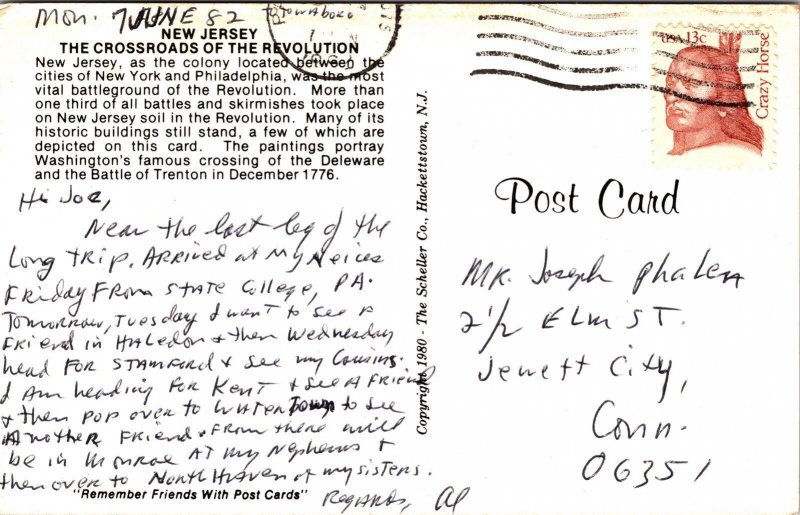 Mon. 7 JUNE 82 Totowaboro
NEW JERSEY
THE CROSSROADS OF THE REVOLUTION
New Jersey, as the colony located between the
cities of New York and Philadelphia, was the most
vital battleground of the Revolution. More than
one third of all battles and skirmishes took place
on New Jersey soil in the Revolution. Many of its
historic buildings still stand, a few of which are
depicted on this card. The paintings portray
Washington's famous crossing of the Deleware
and the Battle of Trenton in December 1776.
Hi Joe,
Near the last leg of the
Long trip. Arrived at my Neices
Friday from State College, PA.
Tomorrow, Tuesday I want to see a
friend in Haledon + then Wednesday
head for Stamford + see my Cousins.
I am heading for Kent + see a friend
+ then pop over to Watertown to see
another friend. From there will
be in Monroe at my Nephews +
then over to North Haven at my sisters.
"Remember Friends With Post Cards"
Regards, Al
Copyright 1980 - The Scheller Co., Hackettstown, N.J.
USA 13c
Crazy Horse
Post Card
Mr. Joseph Phalen
2 1/2 Elm St.
Jewett City,
Conn.
06351